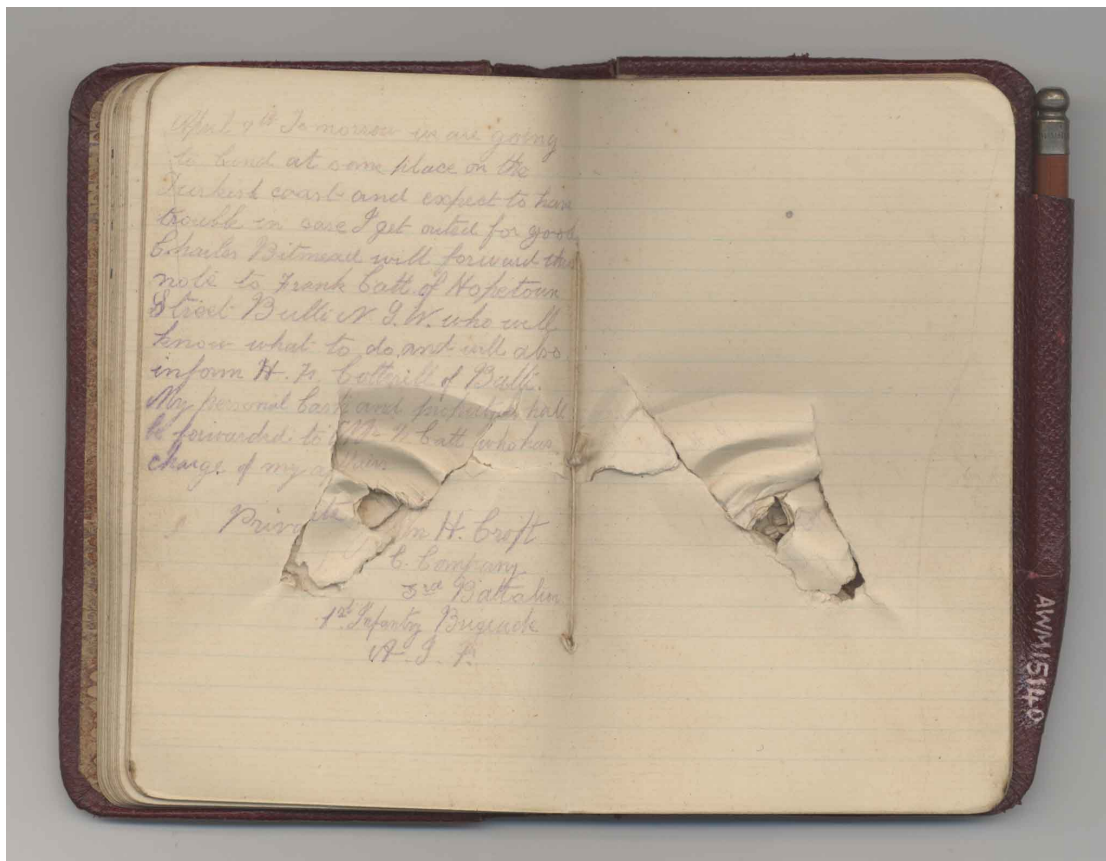 April 7th Tomorrow we are going
to land at some place on the
Turkish coast and expect to have
trouble in case I get outed for good
Charles Bitmead will forward this
note to Frank Catt of Hopetoun
Street Bulli N.S.W. who will
know what to do and will also
inform H. F. Cotterill of Bulli.
My personal Cash and shall
be forwarded to Mr F Catt who has
charge of my
Private H. Croft
C. Company
3rd Battalion
1st Infantry Brigade
A. I. F.
AWM15140